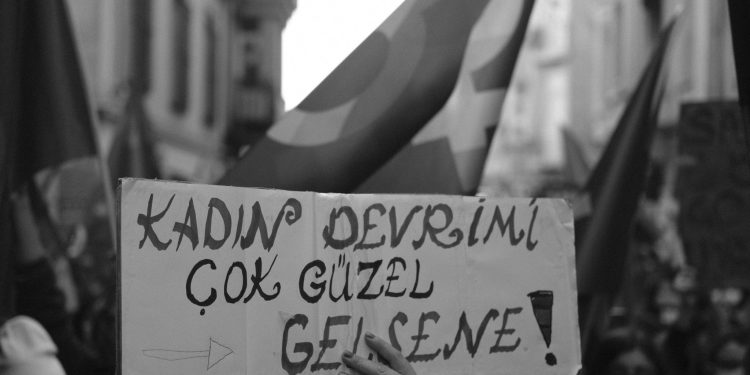 KADIN DEVRİMİ
ÇOK GÜZEL
GELSENE!